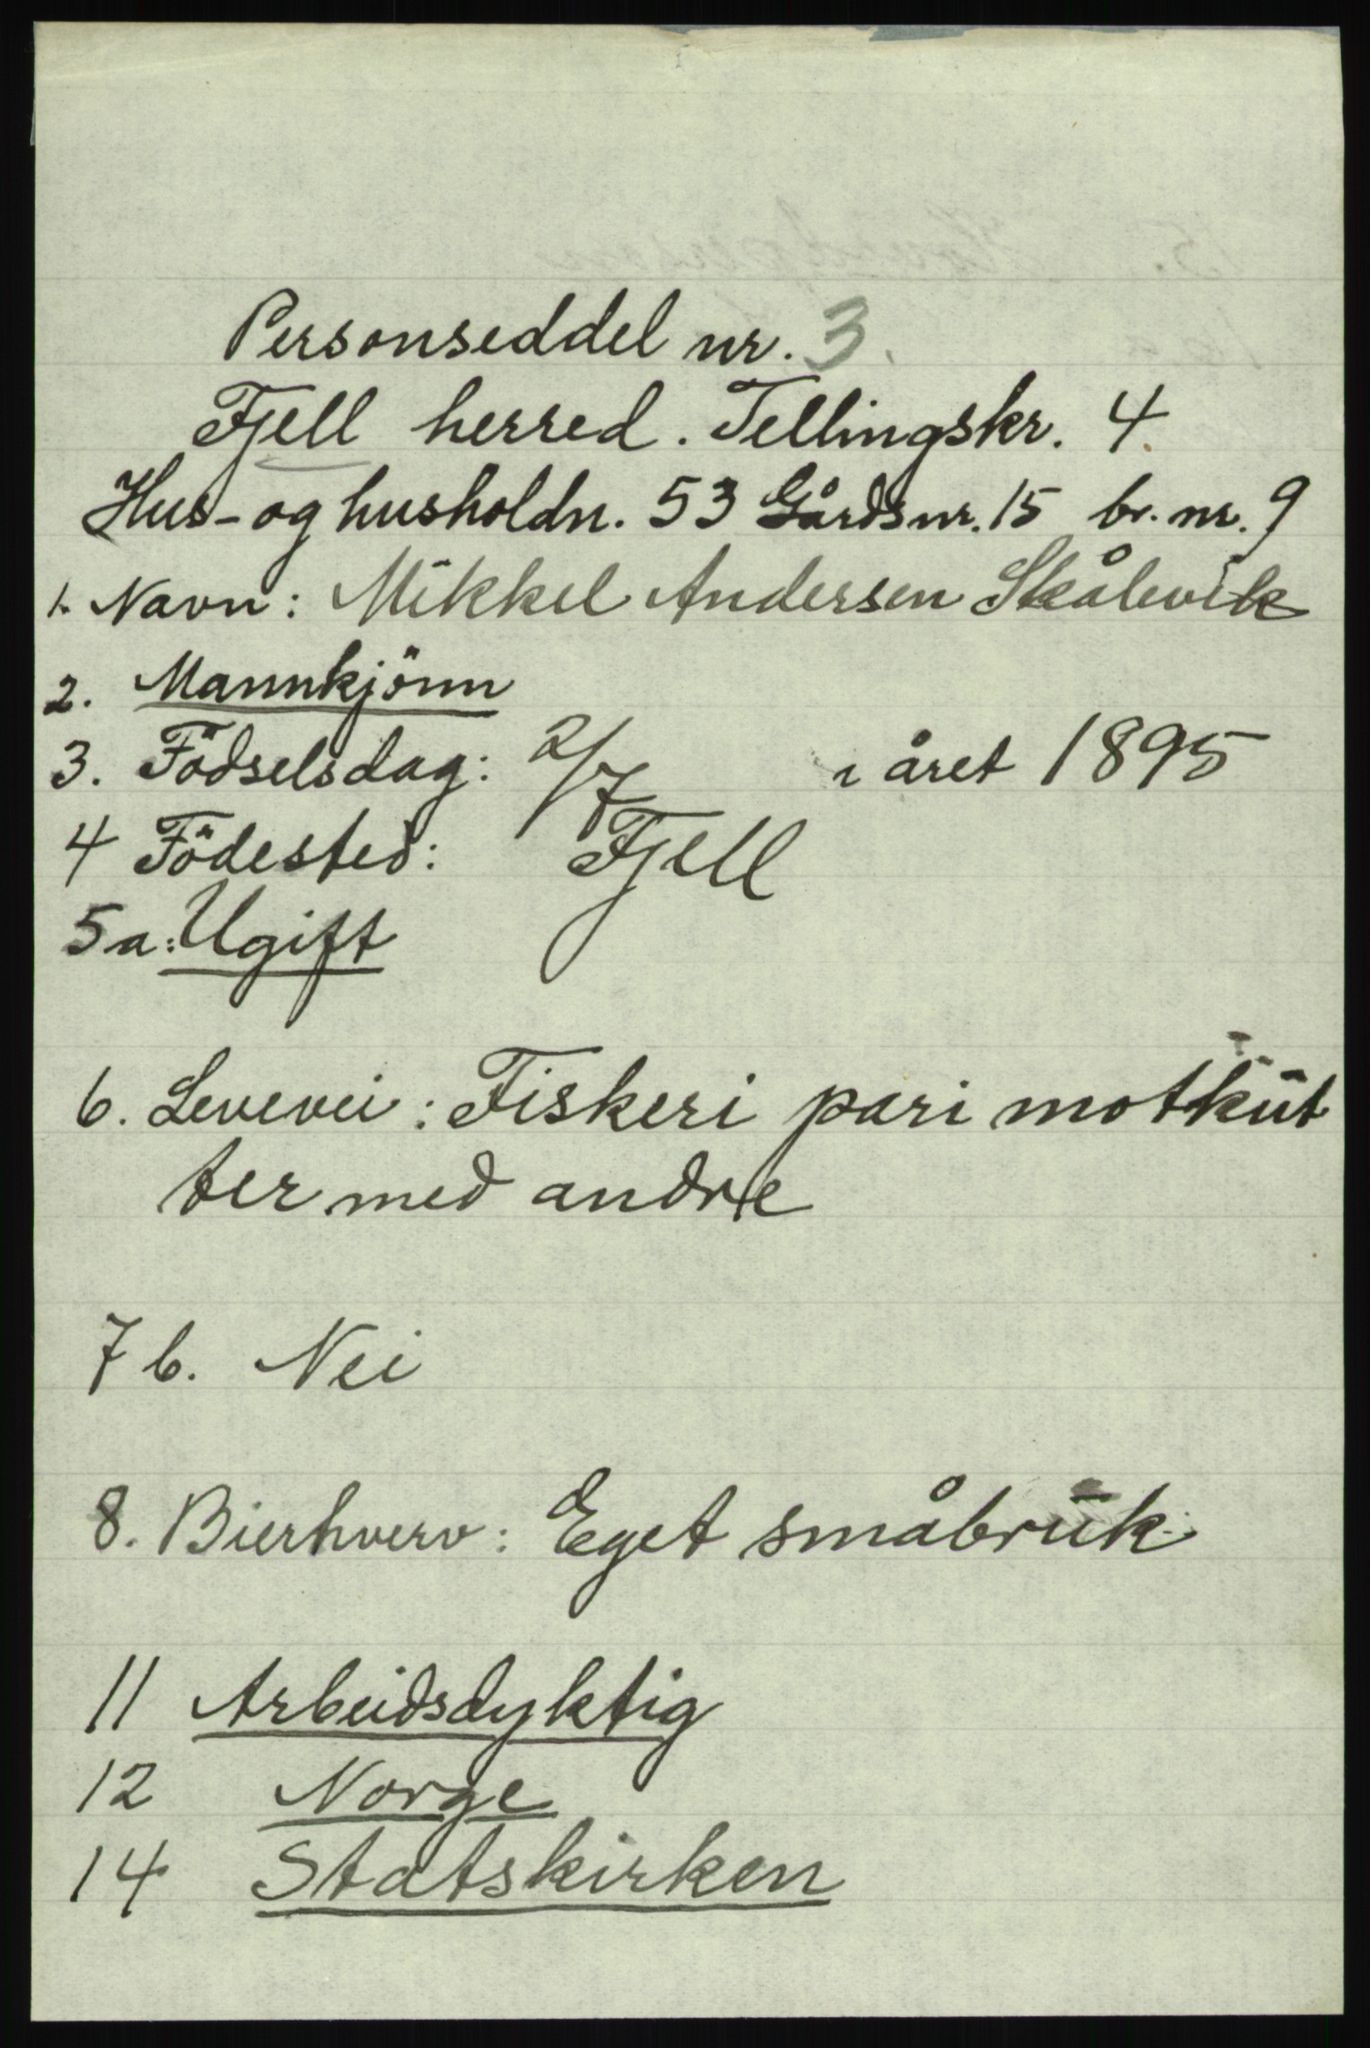 Personseddel nr. 3.
Fjell herred. Tellingskr. 4.
Hus- og husholdn. 53 Gårdsnr. 15 br. nr. 9
1. Navn: Mikkel Andersen Skålevik
2. Mannkjönn
3. Födselsdag: 2/7 i året 1895
4 Födested: Fjell
5a: Ugift
6. Levevei: Fiskeri pari motkut
ter med andre
7 b. Nei
8. Bierhverv: Eget småbruk
11 Arbeidsdyktig
12 Norge
14 Statskirken